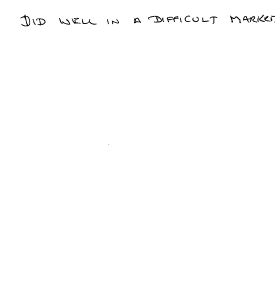 DID WELL IN A DIFFICULT MARKET.